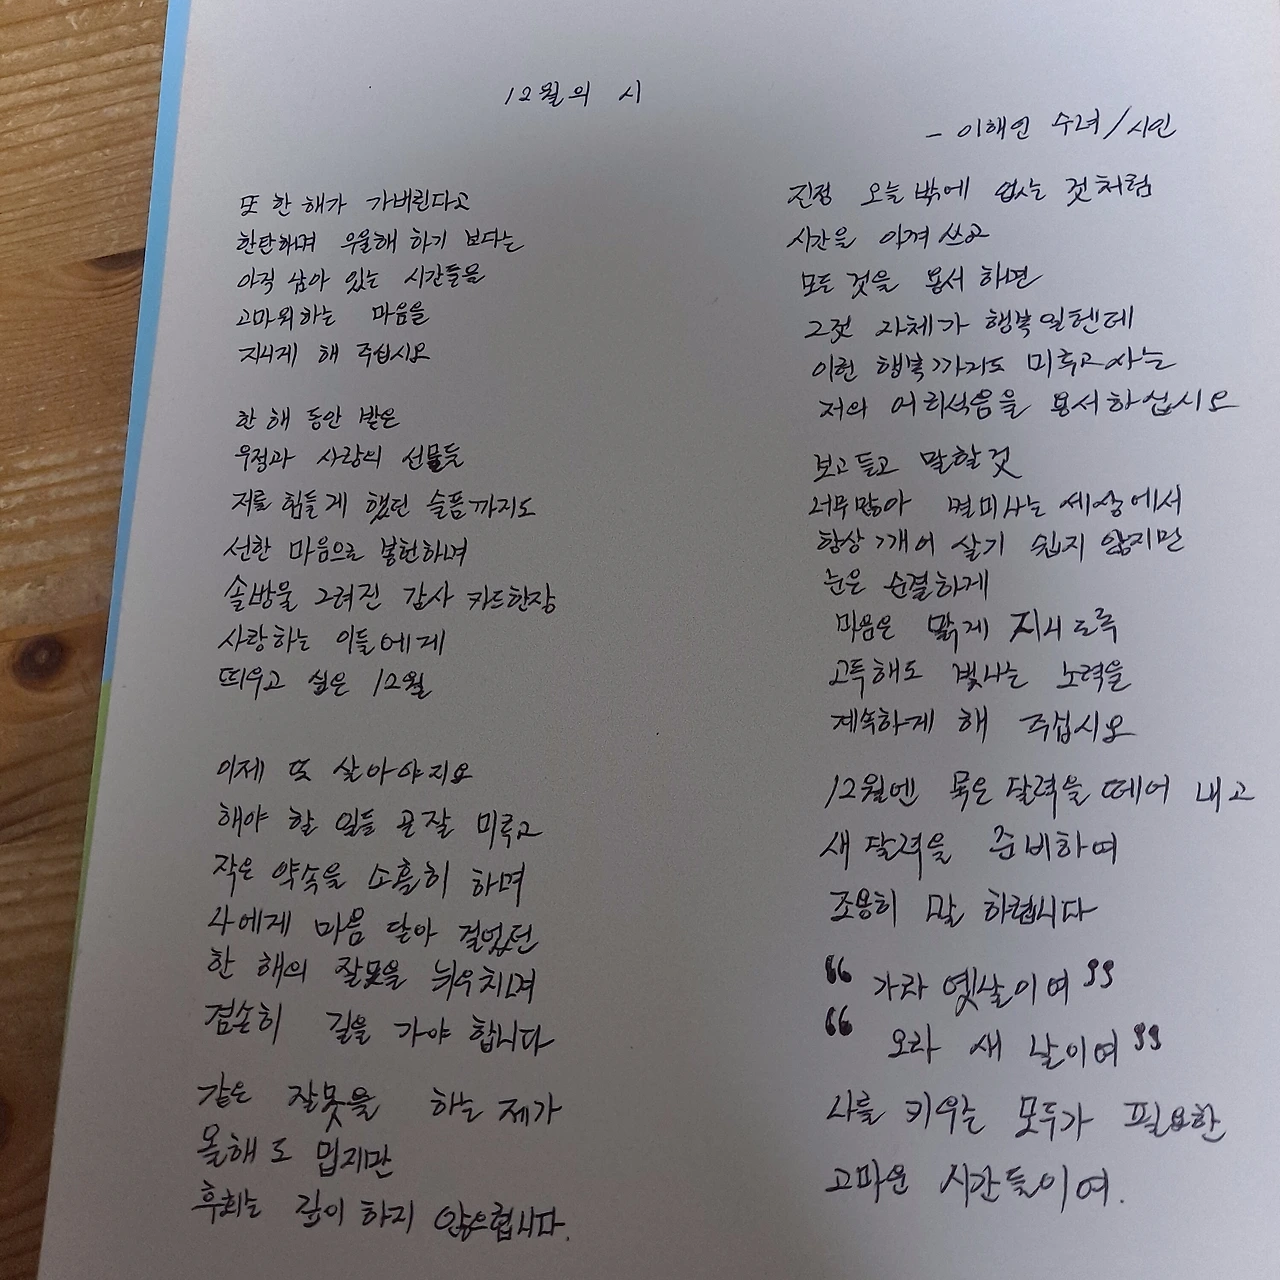 12월의 시
- 이해인 수녀/시인
또 한 해가 가버린다고
한탄하며 우울해 하기 보다는
아직 남아 있는 시간들을
고마워하는 마음을
지니게 해 주십시오
한 해 동안 받은
우정과 사랑의 선물들
저를 힘들게 했던 슬픔까지도
선한 마음으로 봉헌하며
솔방울 그려진 감사 카드한장
사랑하는 이들에게
띄우고 싶은 12월
이제 또 살아야지요
해야 할 일들 곧잘 미루고
작은 약속을 소홀히 하며
나에게 마음 닫아 걸었던
한 해의 잘못을 뉘우치며
겸손히 길을 가야 합니다
같은 잘못을 하는 제가
올해도 밉지만
후회는 깊이 하지 않으렵니다.
진정 오늘밖에 없는 것처럼
시간을 아껴쓰고
모든 것을 용서 하면
그것 자체가 행복일텐데
이런 행복까지도 미루고사는
저의 어리석음을 용서하십시오
보고듣고 말할것
너무많아 멀미나는 세상에서
항상 깨어 살기 쉽지 않지만
눈은 순결하게
마음은 맑게 지니도록
고독해도 빛나는 노력을
계속하게 해 주십시오
12월엔 묵은 달력을 떼어 내고
새 달력을 준비하며
조용히 말 하렵니다
“ 가라 옛날이여 ”
“ 오라 새 날이여 ”
나를 키우는 모두가 필요한
고마운 시간들이여.